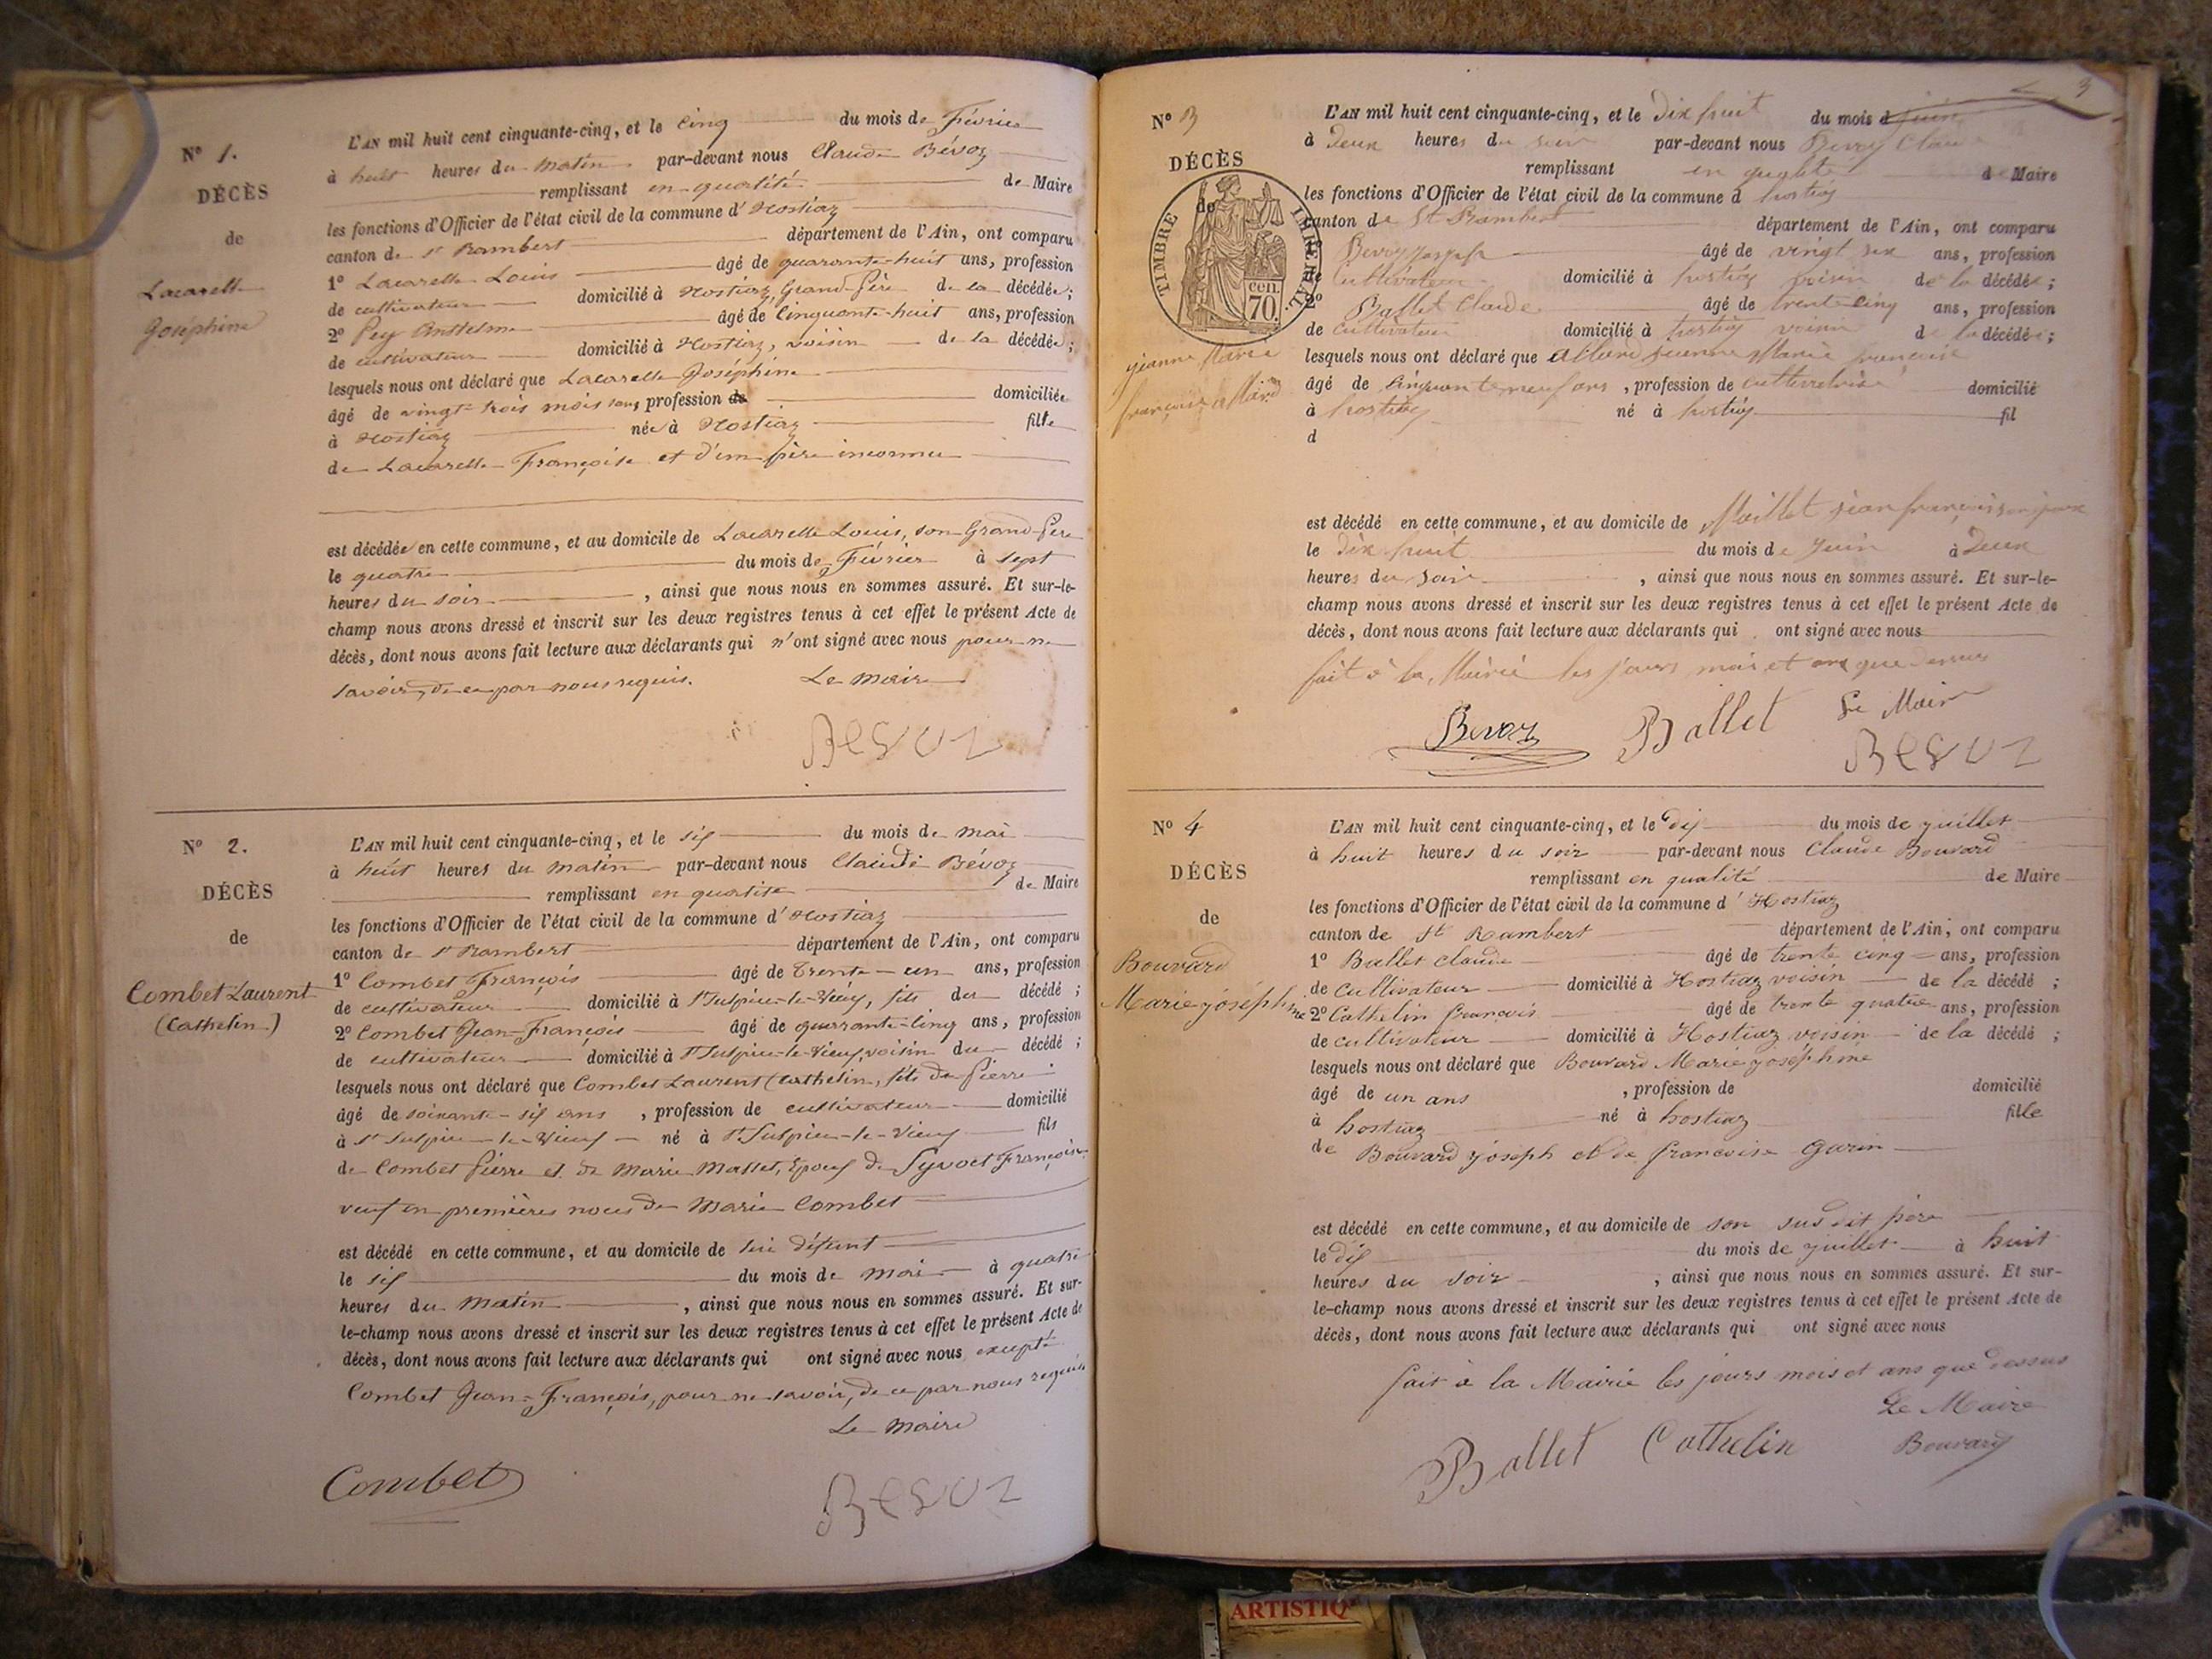 N° 1.
DÉCÈS
de
Lacarelle
Joséphine
L'AN mil huit cent cinquante-cinq, et le cinq du mois de Février
à huit heures du matin par-devant nous Claude Bévoz
remplissant en qualité de Maire
les fonctions d'Officier de l'état civil de la commune d'Hostiaz
canton de St Rambert département de l'Ain, ont comparu
1° Lacarelle Louis âgé de quarante-huit ans, profession
de cultivateur domicilié à Hostiaz, Grand-Père de la décédée;
2° Pey Anthelme âgé de cinquante-huit ans, profession
de cultivateur domicilié à Hostiaz, voisin de la décédée;
lesquels nous ont déclaré que Lacarelle Joséphine
âgé de vingt-trois mois, profession de domiciliée
à Hostiaz née à Hostiaz fille
de Lacarelle Françoise et d'un père inconnu
est décédée en cette commune, et au domicile de Lacarelle Louis, son Grand-Père
le quatre du mois de Février à sept
heures du soir, ainsi que nous nous en sommes assuré. Et sur-le-
champ nous avons dressé et inscrit sur les deux registres tenus à cet effet le présent Acte de
décès, dont nous avons fait lecture aux déclarants qui n'ont signé avec nous pour ne
savoir, de ce par nous requis. Le Maire
Bevoz
N° 2.
DÉCÈS
de
Combet Laurent
(Cathelin)
L'AN mil huit cent cinquante-cinq, et le six du mois de mai
à huit heures du matin par-devant nous Claude Bévoz
remplissant en qualité de Maire
les fonctions d'Officier de l'état civil de la commune d'Hostiaz
canton de St Rambert département de l'Ain, ont comparu
1° Combet François âgé de trente-un ans, profession
de cultivateur domicilié à St Sulpice-le-Vieux, fils du décédé;
2° Combet Jean-François âgé de quarante-cinq ans, profession
de cultivateur domicilié à St Sulpice-le-Vieux, voisin du décédé;
lesquels nous ont déclaré que Combet Laurent (Cathelin, fils de Pierre
âgé de soixante-six ans, profession de cultivateur domicilié
à St Sulpice-le-Vieux né à St Sulpice-le-Vieux fils
de Combet Pierre et de Marie Masset, Époux de Syvoct Françoise
veuf en premières noces de Marie Combet
est décédé en cette commune, et au domicile de sus défunt
le six du mois de mai à quatre
heures du matin, ainsi que nous nous en sommes assuré. Et sur-
le-champ nous avons dressé et inscrit sur les deux registres tenus à cet effet le présent Acte de
décès, dont nous avons fait lecture aux déclarants qui ont signé avec nous excepté
Combet Jean-François, pour ne savoir, de ce par nous requis
Le Maire
Combet Bevoz
3
N° 3
DÉCÈS
de
TIMBRE IMPERIAL
70. cen
jeanne Marie
françoise allard
L'AN mil huit cent cinquante-cinq, et le dix huit du mois d juin
à deux heures du soir par-devant nous Bevoz Claude
remplissant en qualité de Maire
les fonctions d'Officier de l'état civil de la commune d hostiaz
canton de St Rambert département de l'Ain, ont comparu
Bevoz joseph âgé de vingt six ans, profession
de Cultivateur domicilié à hostiaz voisin de la décédée;
2° Ballet Claude âgé de trente cinq ans, profession
de cultivateur domicilié à hostiaz voisin de la décédée;
lesquels nous ont déclaré que allard jeanne Marie françoise
âgé de cinquante neuf ans, profession de cultivatrice domicilié
à hostiaz né à hostiaz fil
d
est décédé en cette commune, et au domicile de Maillet jean françois son époux
le dix huit du mois de Juin à deux
heures du soir, ainsi que nous nous en sommes assuré. Et sur-le-
champ nous avons dressé et inscrit sur les deux registres tenus à cet effet le présent Acte de
décès, dont nous avons fait lecture aux déclarants qui ont signé avec nous
fait à la Mairie les jours mois et ans que dessus
Bevoz Ballet Le Maire
Bevoz
N° 4
DÉCÈS
de
Bouvard
Marie joséphine
L'AN mil huit cent cinquante-cinq, et le dix du mois de juillet
à huit heures du soir par-devant nous Claude Bouvard
remplissant en qualité de Maire
les fonctions d'Officier de l'état civil de la commune d'Hostiaz
canton de St Rambert département de l'Ain, ont comparu
1° Ballet Claude âgé de trente cinq ans, profession
de cultivateur domicilié à Hostiaz voisin de la décédé;
2° Cathelin françois âgé de trente quatre ans, profession
de cultivateur domicilié à Hostiaz voisin de la décédé;
lesquels nous ont déclaré que Bouvard Marie joséphine
âgé de un ans, profession de domicilié
à hostiaz né à hostiaz fille
de Bouvard joseph et de françoise Garin
est décédé en cette commune, et au domicile de son susdit père
le dix du mois de juillet à huit
heures du soir, ainsi que nous nous en sommes assuré. Et sur-
le-champ nous avons dressé et inscrit sur les deux registres tenus à cet effet le présent Acte de
décès, dont nous avons fait lecture aux déclarants qui ont signé avec nous
fait à la Mairie les jours mois et ans que dessus
Le Maire
Ballet Cathelin Bouvard
ARTISTIQ